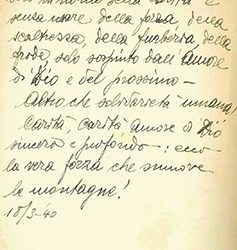 senza usare della forza, della
scaltrezza, della furberia, della
frode, solo sospinto dall'Amore
di Dio e del prossimo –
Altro che solidarietà umana!
Carità, carità amore di Dio
sincero e profondo: ecco
la vera forza che smuove
le montagne!
18/3-40